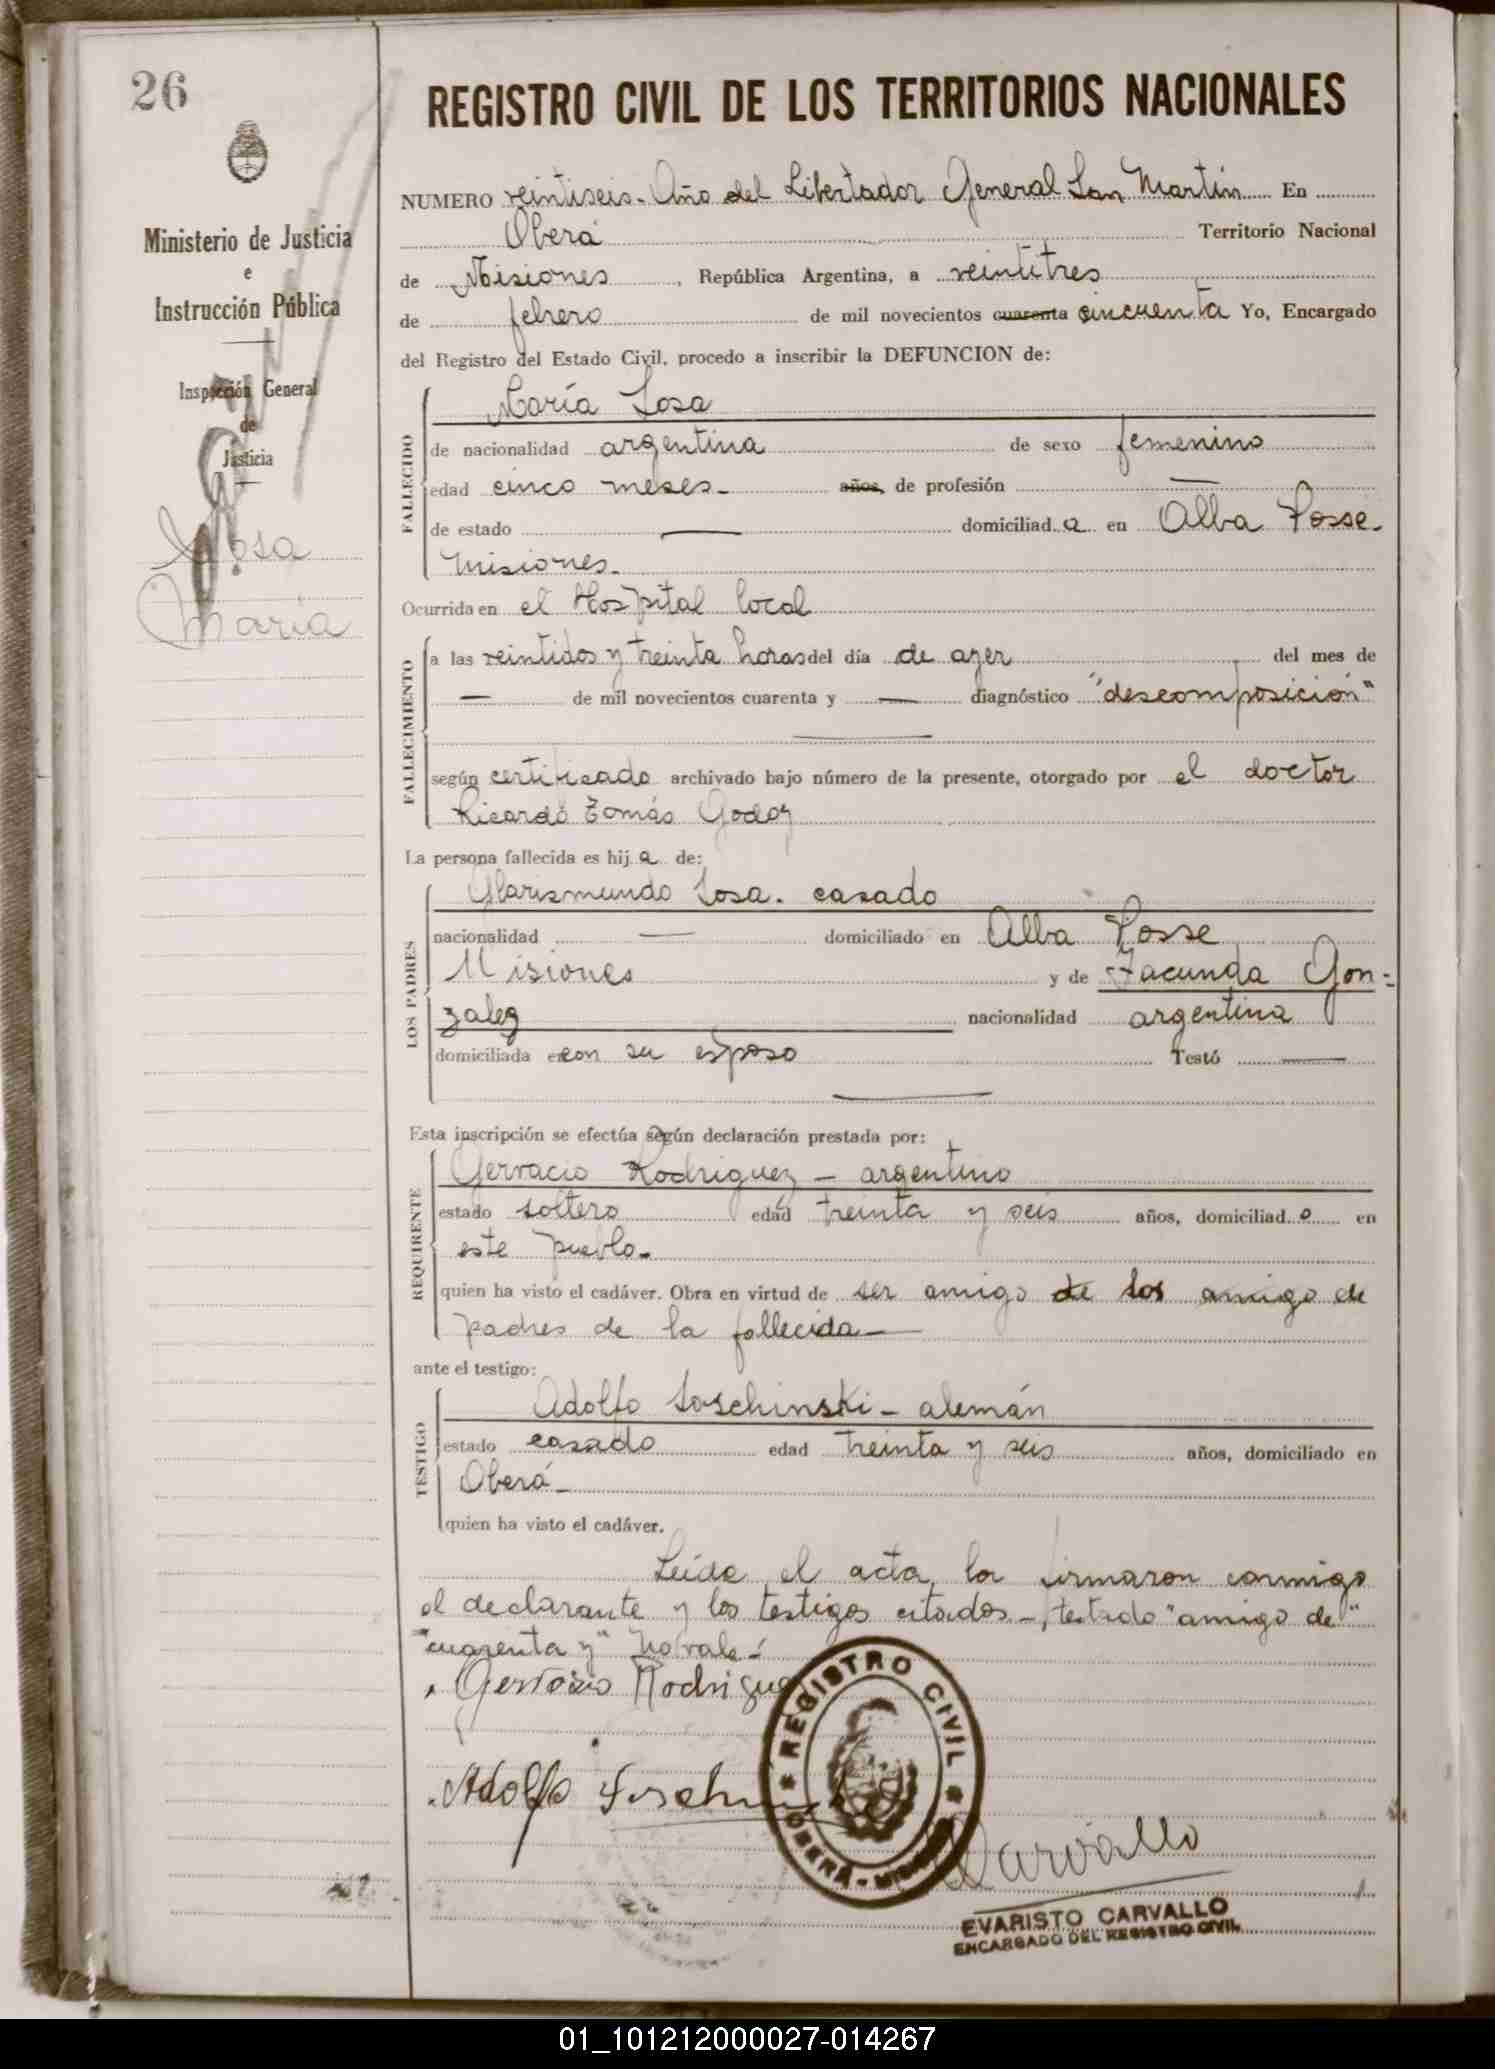 26
REGISTRO CIVIL DE LOS TERRITORIOS NACIONALES
Ministerio de Justicia
e
Instrucción Pública
Inspección General
de
Justicia
Sosa
María
NUMERO veintiseis. Año del Libertador General San Martín En
Oberá Territorio Nacional
de Misiones, República Argentina, a veintitres
de febrero de mil novecientos cuarenta cincuenta Yo, Encargado
del Registro del Estado Civil, procedo a inscribir la DEFUNCION de:
FALLECIDO
María Sosa
de nacionalidad argentina de sexo femenino
edad cinco meses - años, de profesión —
de estado — domiciliad a en Alba Posse-
Misiones.
Ocurrida en el Hospital local
FALLECIMIENTO
a las veintidos y treinta horas del día de ayer del mes de
— de mil novecientos cuarenta y — diagnóstico "descomposición"
según certificado archivado bajo número de la presente, otorgado por el doctor
Ricardo Tomás Godoy
La persona fallecida es hij a de:
LOS PADRES
Sosa. casado
nacionalidad — domiciliado en Alba Posse
Misiones y de Facunda Gon-
zalez nacionalidad argentina
domiciliada en con su esposo Testó —
Esta inscripción se efectúa según declaración prestada por:
REQUIRENTE
Gervacio Rodriguez - argentino
estado soltero edad treinta y seis años, domiciliad o en
este pueblo.
quien ha visto el cadáver. Obra en virtud de ser amigo de los amigo de
padres de la fallecida—
ante el testigo:
TESTIGO
Adolfo Loschinski - alemán
estado casado edad treinta y seis años, domiciliado en
Oberá-
quien ha visto el cadáver.
Leída el acta, la firmaron conmigo
el declarante y los testigos citados-, testado "amigo de"
"cuarenta y" No vale-
Gervasio Rodrigue
Adolfo
REGISTRO CIVIL
OBERÁ - MISIONES
Carvallo
EVARISTO CARVALLO
ENCARGADO DEL REGISTRO CIVIL
01_101212000027-014267